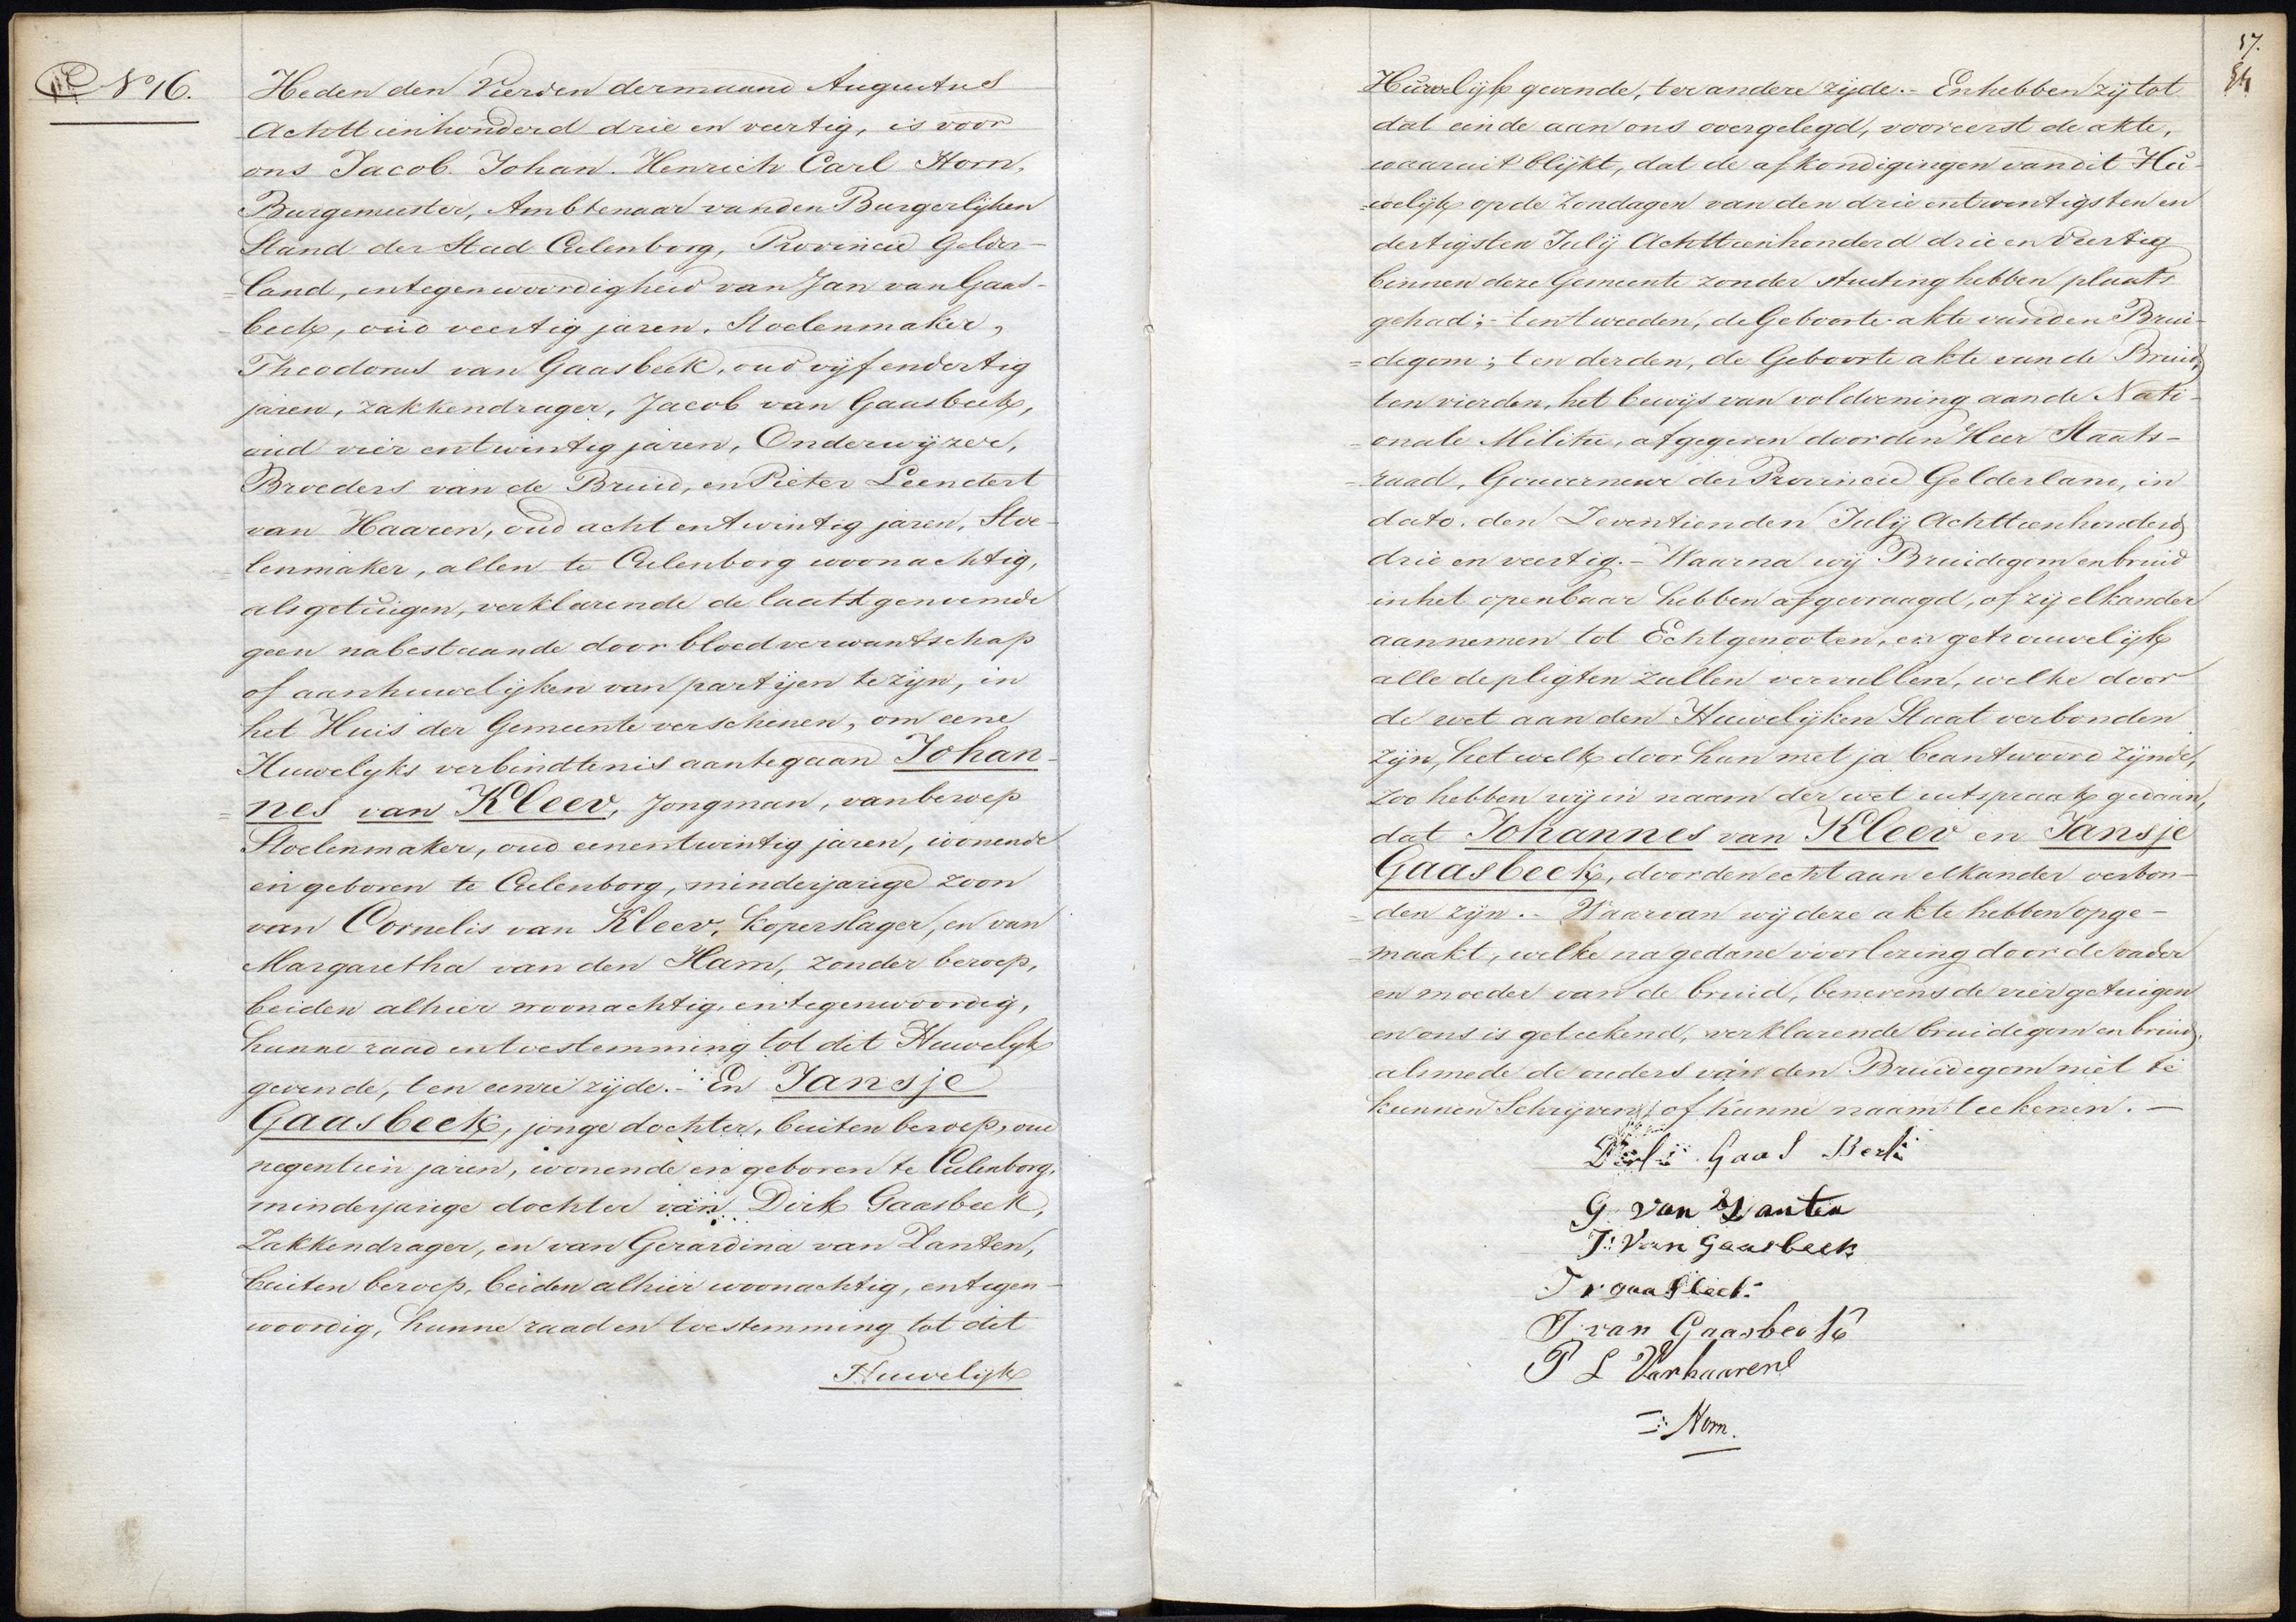 No 16.
Heden den Vierden der maand Augustus
Achttienhonderd drie en veertig, is voor
ons Jacob Johan Henrich Carl Horn,
Burgemeester, Ambtenaar van den Burgerlijken
Stand der Stad Culenborg, Provincie Gelder-
=land, in tegenwoordigheid van Jan van Gaas-
=beek, oud veertig jaren, Stoelenmaker,
Theodorus van Gaasbeek, oud vijf en dertig
jaren, zakkendrager, Jacob van Gaasbeek,
oud vier en twintig jaren, Onderwijzer,
Broeders van de Bruid, en Pieter Leendert
van Haaren, oud acht en twintig jaren, Stoe-
=lenmaker, allen te Culenborg woonachtig,
als getuigen, verklarende de laatstgenoemde
geen nabestaande door bloedverwantschap
of aanhuwelijken van partijen te zijn, in
het Huis der Gemeente verschenen, om eene
Huwelyks verbindtenis aantegaan Johan-
=nes van Kleev, Jongman, van beroep
Stoelenmaker, oud eenentwintig jaren, wonende
en geboren te Culenborg, minderjarige zoon
van Cornelis van Kleev, koperslager, en van
Margaretha van den Ham, zonder beroep,
beiden alhier woonachtig, en tegenwoordig,
hunne raad en toestemming tot dit Huwelyk
gevende, ten eenre zijde. - En Jansje
Gaasbeek, jonge dochter, buiten beroep, oud
negentien jaren, wonende en geboren te Culenborg,
minderjarige dochter van Dirk Gaasbeek,
Zakkendrager, en van Gerardina van Zanten,
buiten beroep, beiden alhier woonachtig, en tegen-
woordig, hunne raad en toestemming tot dit
Huwelijk
17.
Huwelijk gevende, ter andere zijde. - En hebben zij tot
dat einde aan ons overgelegd, vooreerst de akte,
waaruit blijkt, dat de afkondigingen van dit Hu-
=welijk op de Zondagen van den drie en twentigsten en
dertigsten Julij Achttienhonderd drie en Veertig
binnen deze Gemeente zonder stuiting hebben plaats
gehad; - ten tweeden, de Geboorte akte van den Brui-
=degom; ten derden, de Geboorte akte van de Bruid,
ten vierden, het bewijs van voldoening aan de Nati-
=onale Militie, afgegeven door den Heer Staats-
=raad, Gouverneur der Provincie Gelderland, in
dato den Zeventienden Julij Achttienhonderd
drie en veertig. - Waarna wij Bruidegom en bruid
in het openbaar hebben afgevraagd, of zij elkander
aannemen tot Echtgenooten, en getrouwelijk
alle de pligten zullen vervullen, welke door
de wet aan den Huwelijken Staat verbonden
zijn, het welk door hun met ja beantwoord zijnde,
zoo hebben wij in naam der wet uitspraak gedaan,
dat Johannes van Kleev en Jansje
Gaasbeek, door den echt aan elkander verbon-
=den zijn. - Waarvan wij deze akte hebben opge-
=maakt, welke na gedane voorlezing door de vader
en moeder van de bruid, benevens de vier getuigen
en ons is geteekend, verklarende bruidegom en bruid,
alsmede de ouders van den Bruidegom niet te
kunnen Schrijven, of hunne naam teekenen. -
Dirk Gaas Bek
G van Zanten
J: Van Gaasbeek
T v gaasbeek
J van Gaasbeek
P L Vanhaaren
Horn.